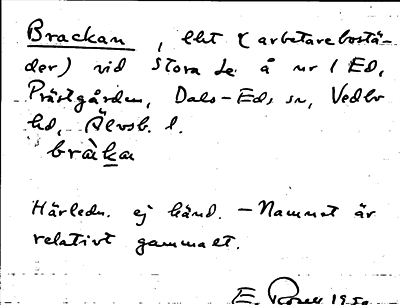 Brackan, lht (arbetarebostä-
der) vid Stora Le å nr 1 Ed,
Prästgården, Dals-Eds sn, Vedbo
hd, Älvsb. l.
bràka
Härledn. ej känd. - Namnet är
relativt gammalt.
E. Rosell 1950